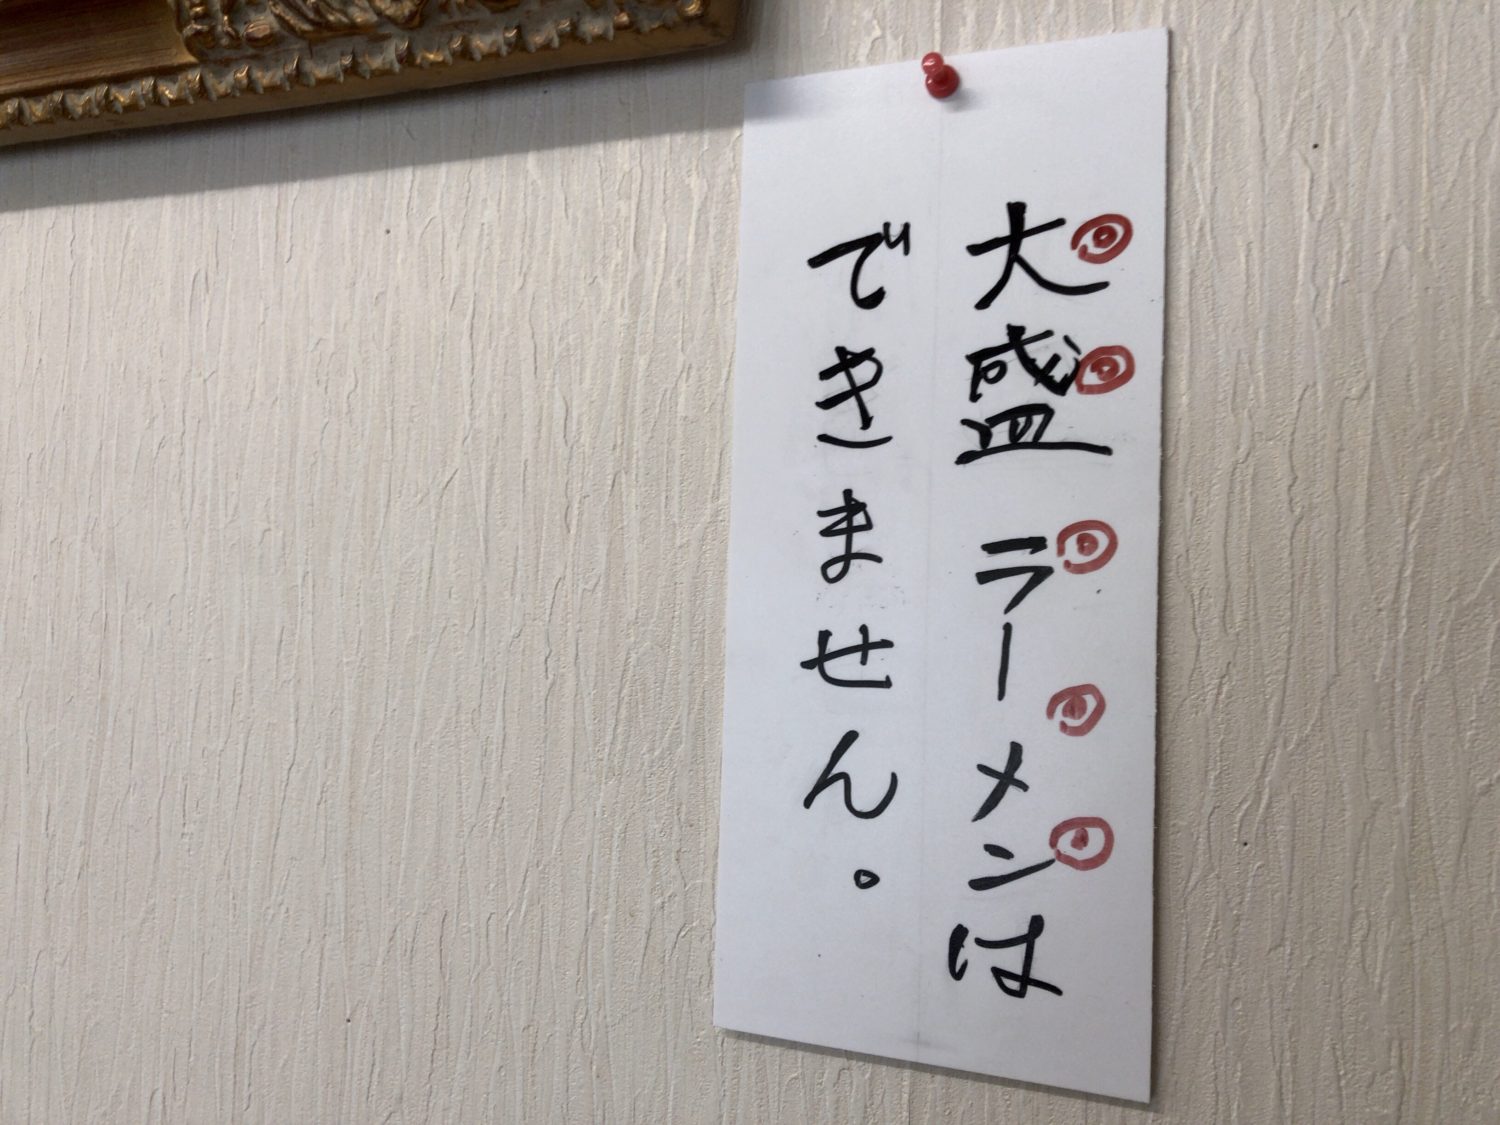 大盛ラーメンは
できません。